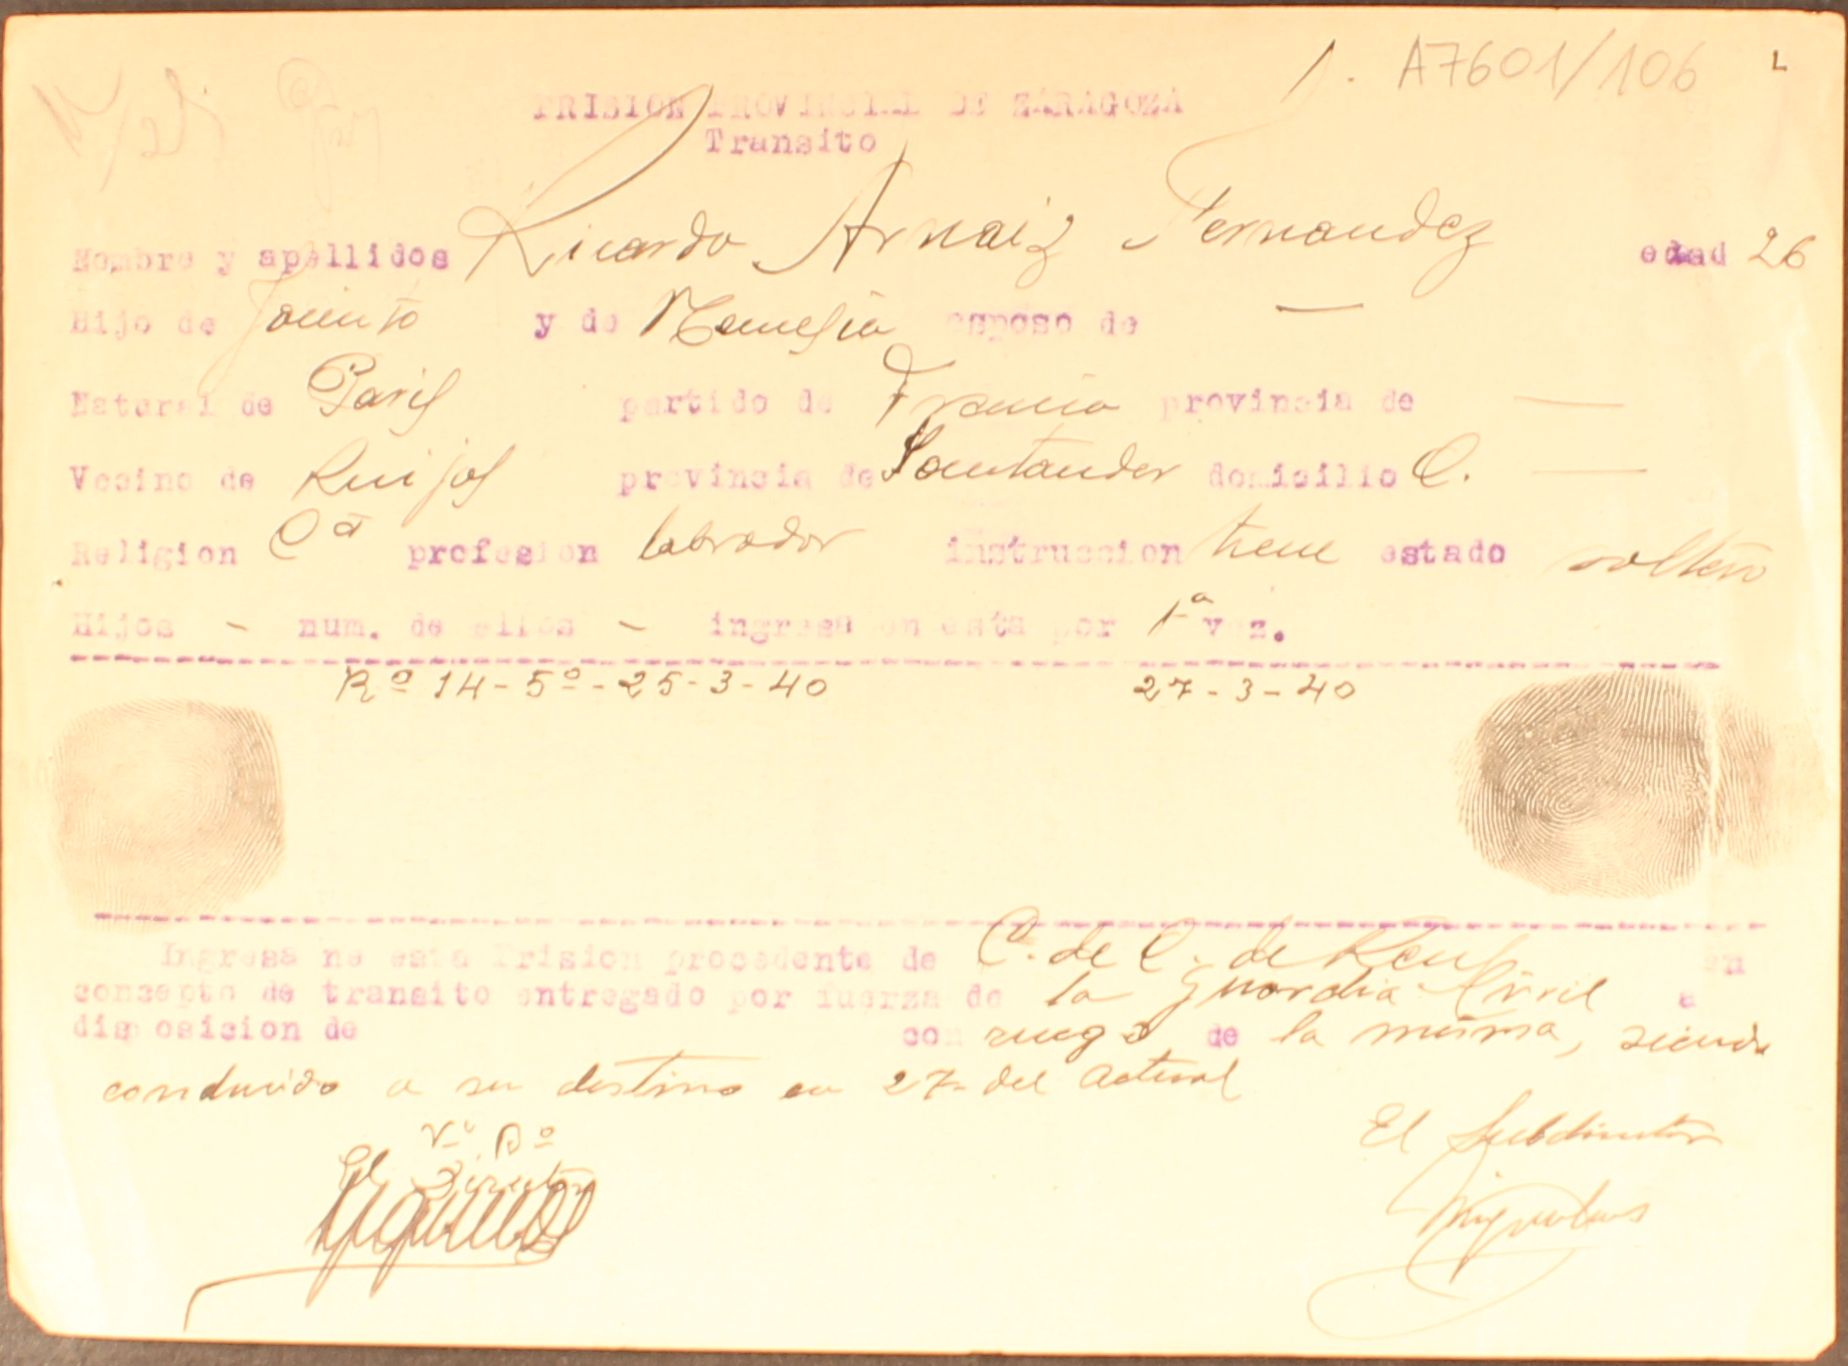 A7601/106 L
PRISION PROVINCIAL DE ZARAGOZA
Transito
Nombre y apellidos Ricardo Arnaiz Fernandez edad 26
Hijo de Jacinto y de Nemesia esposo de —
Natural de Paris partido de Francia provincia de —
Vecino de Ruijas provincia de Santander domicilio C. —
Religion Cª profesion labrador instruccion tiene estado soltero
Hijos - num. de ellos - ingresa en esta por 1ª vez.
Rº 14-5º-25-3-40 27-3-40
Ingresa ne esta Prision procedente de C. de C. de Reus en
concepto de transito entregado por fuerza de la Guardia Civil a
disposicion de con ruego de la misma, siendo
conducido a su destino en 27 del actual
Vº Bº
El Director
El Subdirector